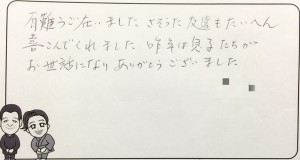 有難うご在いました さそうた友達もたいへん
喜こんでくれました 昨年は息子たちが
お世話になり ありがとうございました